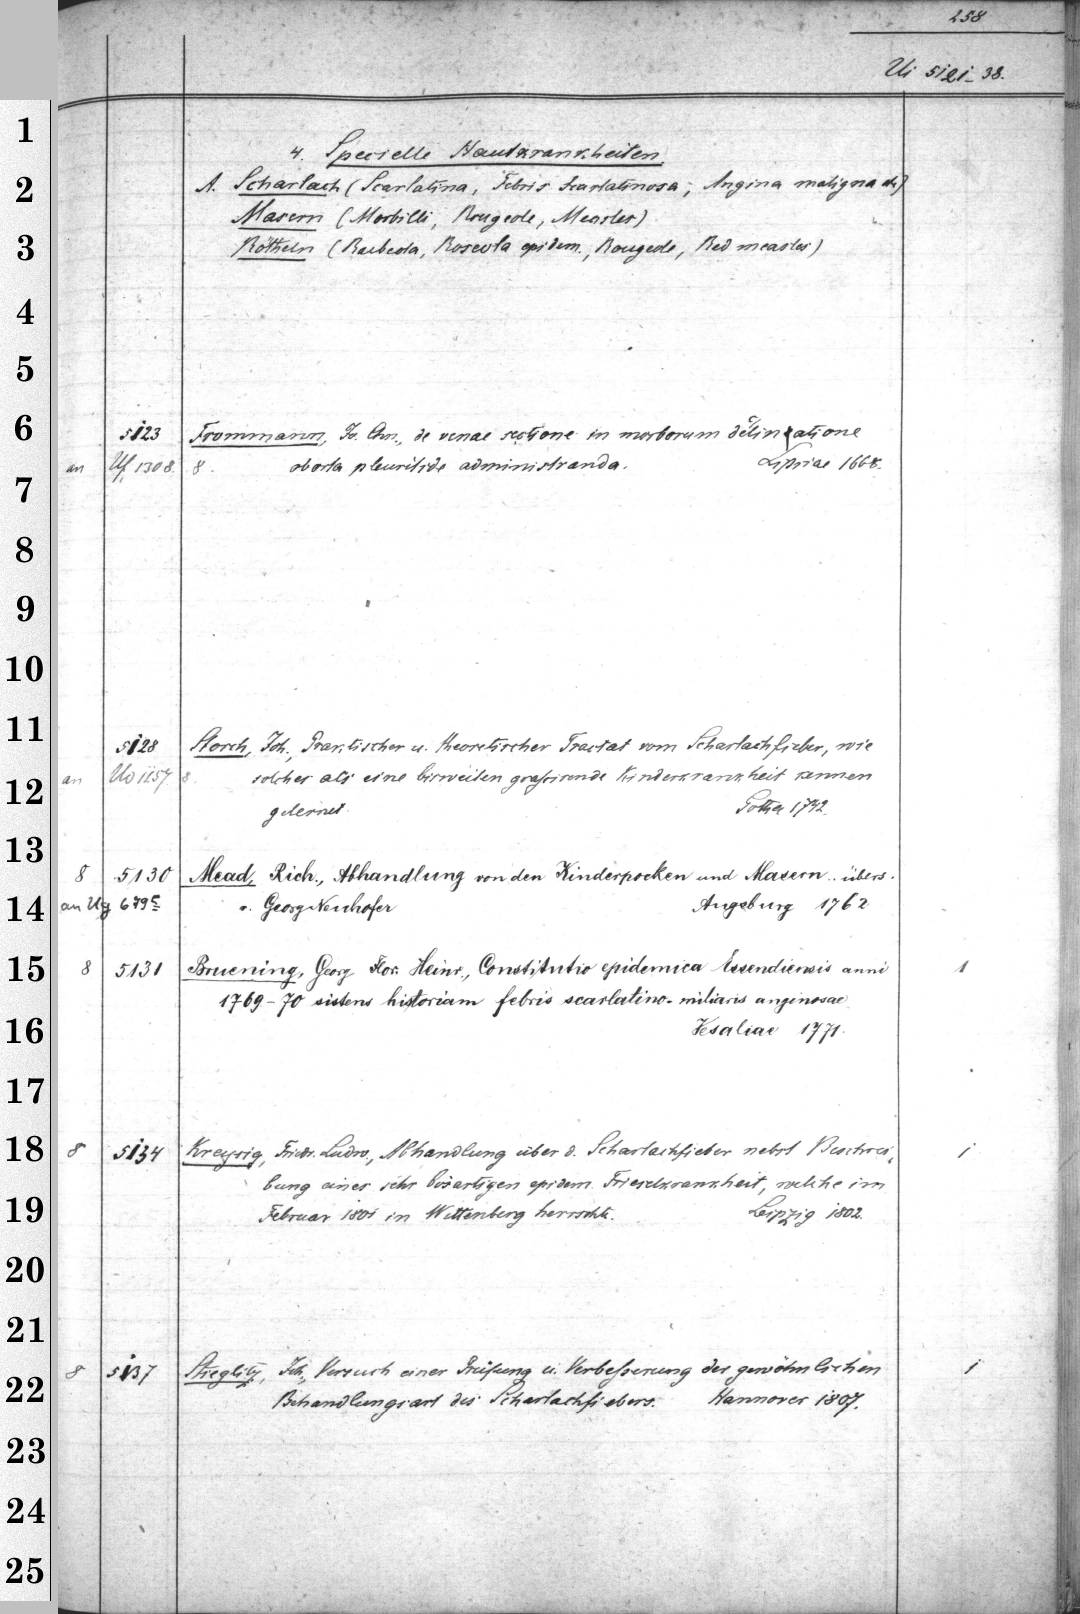 258
Ui 5121-38.
4. Specielle Hautkrankheiten
A. Scharlach (Scarlatina, Febris scarlatinosa, Angina maligna etc)
Masern (Morbilli, Rougeole, Measles)
Rötheln (Rubeola, Roseola epidem., Rougeole, Red measles)
5123 Frommann, Jo. Chr., de venae sectione in morborum declinatione
an Uf 1308. 8. oborta pleuritide administranda. Lipsiae 1668.
5128 Storch, Joh., Practischer u. theoretischer Tractat vom Scharlachfieber, wie
an 1157. 8. solches als eine bisweilen grassirende Kinderkrankheit kennen
gelernet. Gotha 1742.
8 5130 Mead, Rich., Abhandlung von den Kinderpocken und Masern.. übers.
an Ug 679 v. Georg Neuhofer Augsburg 1762
8 5131 Bruening, Georg Flor. Heinr., Constitutio epidemica Essendiensis anni 1
1769-70 sistens historiam febris scarlatino-miliaris anginosae
Vesaliae 1771.
8 5134 Kreysig, Friedr. Ludw., Abhandlung über d. Scharlachfieber nebst Beschrei- 1
bung einer sehr bösartigen epidem. Frieselkrankheit, welche im
Februar 1801 in Wittenberg herrschte. Leipzig 1802.
8 5137 Stieglitz, Joh., Versuch einer Prüfung u. Verbesserung der gewöhnlichen 1
Behandlungsart des Scharlachfiebers. Hannover 1807.
1
2
3
4
5
6
7
8
9
10
11
12
13
14
15
16
17
18
19
20
21
22
23
24
25